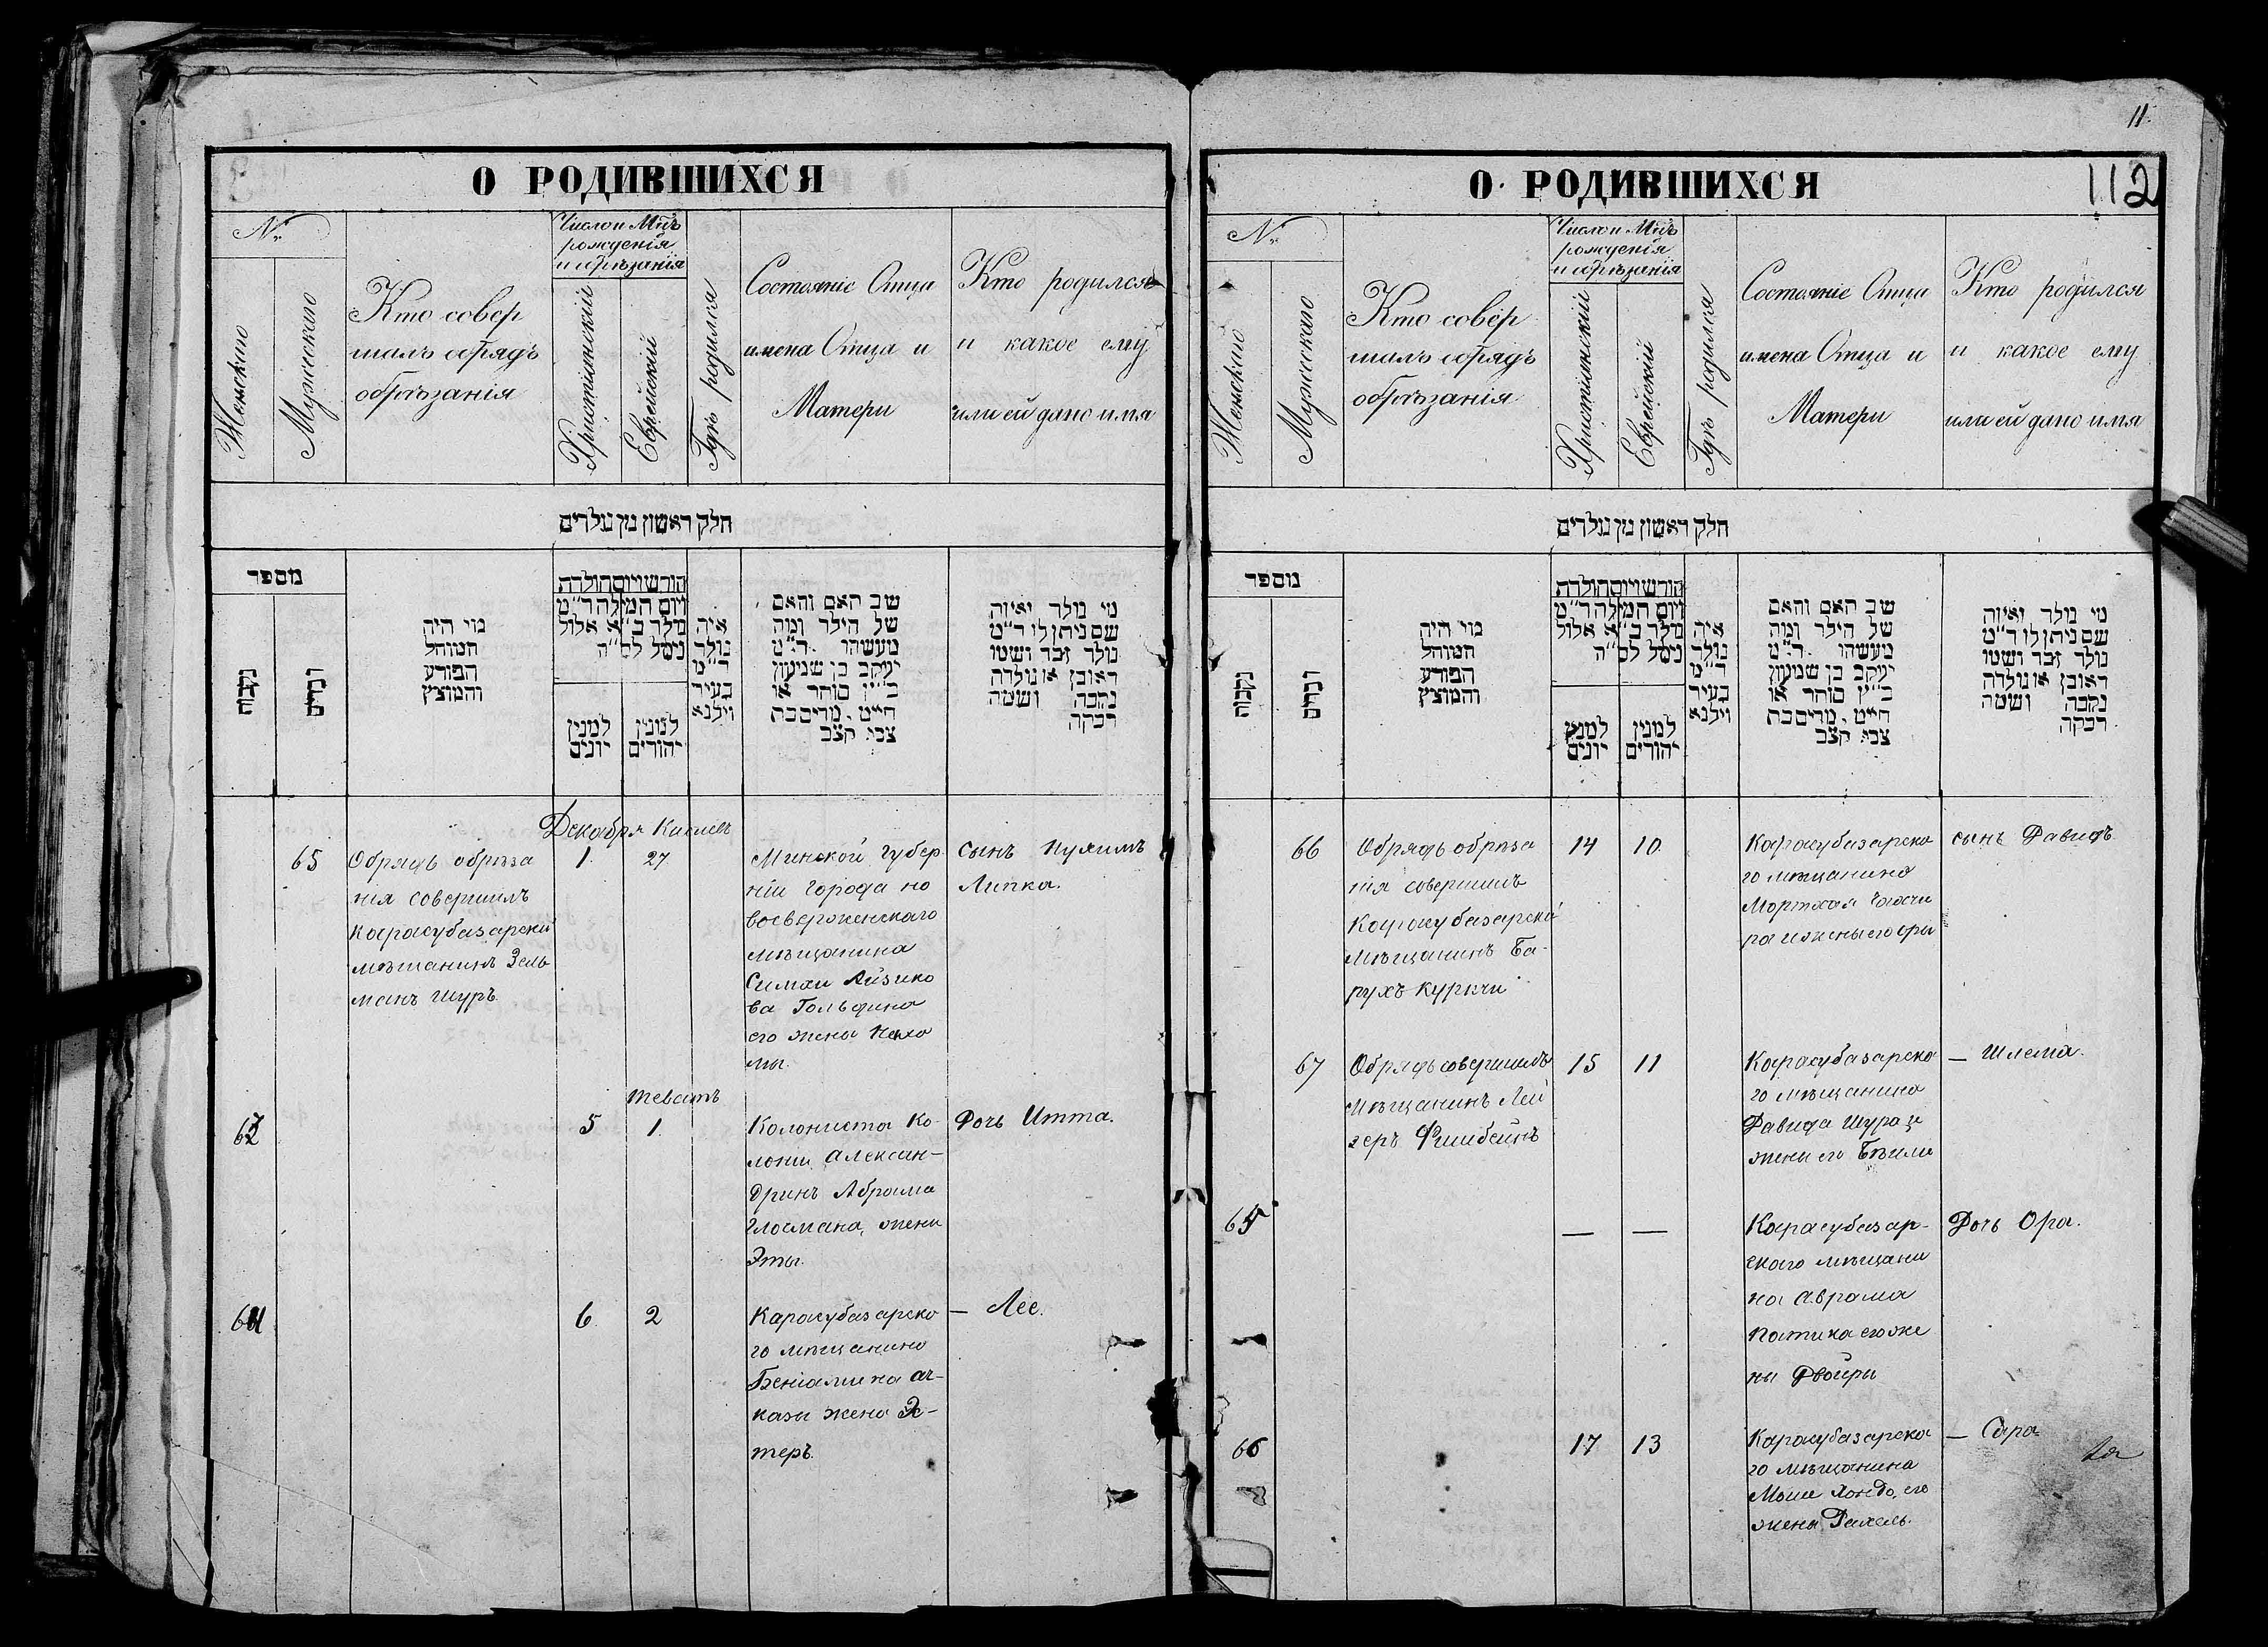 11.
О РОДИВШИХСЯ
№
Женскаго
Мужескаго
Кто совер
шалъ обрядъ
обрѣзанія
Число и Мцъ
рожденія
и обрѣзанія
Христіянскій
Еврейскій
Гдѣ родился
Состояніе Отца
имена Отца и
Матери
Кто родился
и какое ему
или ей дано имя
חלק ראשון מן נולדים
מספר
נקבות
זכרים
מי היה
המוהל
הפורע
והמוצץ
חודש ויום הולדת
ויום המילה ד״מ
נולד כ״א אלול
נימל לס״ה
למנין
יונים
למנין
יהודים
איה
נולד
ד״מ
בעיר
וילנא
שם האב והאם
של הילד ומה
מעשהו ד״מ
יעקב בן שמעון
כ״ץ סוחר או
חייט. מרים בת
צבי קצב
מי נולד ואיזה
שם ניתן לו ד״מ
נולד זכר ושמו
ראובן או נולדה
נקבה ושמה
רבקה
Декабря Кислевъ
65
Обрядъ обрѣза
нія совершилъ
карасубазарскій
мѣщанинъ Зель
манъ Шуръ.
1.
27
Минской губер
ніи города но
мѣщанина
Симхи Айзико
ва Гольдина
его жены Нехо
мы.
сынъ Нухимъ
Липка.
Теватъ
62
5
1.
Колониста Ко-
лоніи Алексан-
Абрама
жены
Эты.
Дочь Итта.
6
2
Карасубазарско
го мѣщанина
Беніамина Ач-
кази жена Эс-
теръ.
— Лее.
О РОДИВШИХСЯ
112
№
Женскаго
Мужескаго
Кто совер
шалъ обрядъ
обрѣзанія
Число и Мцъ
рожденія
и обрѣзанія
Христіянскій
Еврейскій
Гдѣ родился
Состояніе Отца
имена Отца и
Матери
Кто родился
и какое ему
или ей дано имя
חלק ראשון מן נולדים
מספר
נקבות
זכרים
מי היה
המוהל
הפורע
והמוצץ
חודש ויום הולדת
ויום המילה ד״מ
נולד כ״א אלול
נימל לס״ה
למנין
יונים
למנין
יהודים
איה
נולד
ד״מ
בעיר
וילנא
שם האב והאם
של הילד ומה
מעשהו ד״מ
יעקב בן שמעון
כ״ץ סוחר או
חייט. מרים בת
צבי קצב
מי נולד ואיזה
שם ניתן לו ד״מ
נולד זכר ושמו
ראובן או נולדה
נקבה ושמה
רבקה
66
Обрядъ обрѣза
нія совершилъ
Карасубазарской
мѣщанинъ Ба-
рухъ Куркчи
14
10.
Карасубазарско
го мѣщанина
Мортхая
сынъ Давидъ
67
Обрядъ совершилъ
мѣщанинъ Лей
зеръ Фишбейнъ
15
11
Карасубазарско
го мѣщанина
Давида Шура и
жены его Бейли
— Шлема.
65
—
—
Карасубазар-
скаго мѣщани
на Аврама
его же
ны Двойры
Дочь Ора.
66
17
13
Карасубазарска
го мѣщанина
Моше Хондо, его
жены Рахель.
— Сара